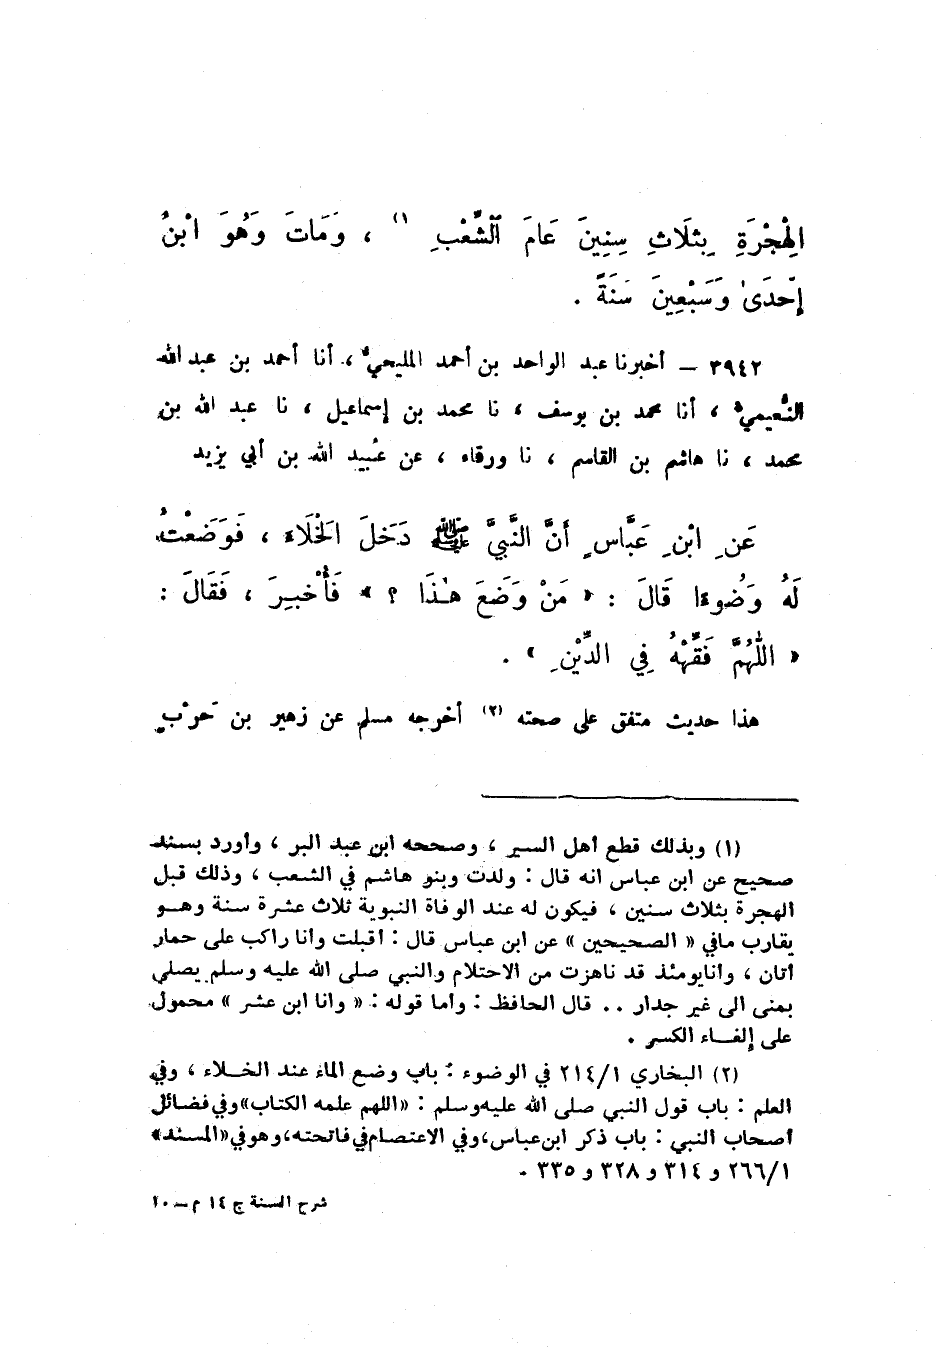 الْهِجْرَةِ بِثَلَاثِ سِنِينَ عَامَ الشِّعْبِ (١) ، وَمَاتَ وَهُوَ ابْنُ
إِحْدَىٰ وَسَبْعِينَ سَنَةً .
٣٩٤٢ – أخبرنا عبد الواحد بن أحمد المليحيُّ ، أنا أحمد بن عبد الله
النُّعيميُّ ، أنا محمد بن يوسف ، نا محمد بن إسماعيل ، نا عبد الله بن
محمد ، نا هاشم بن القاسم ، نا ورقاء ، عن عُبيد الله بن أبي يزيد
عَنِ ابْنِ عَبَّاسٍ أَنَّ النَّبِيَّ ﷺ دَخَلَ الْخَلَاءَ ، فَوَضَعْتُ
لَهُ وَضُوءًا قَالَ : « مَنْ وَضَعَ هٰذَا ؟ » فَأُخْبِرَ ، فَقَالَ :
« اللَّهُمَّ فَقِّهْهُ فِي الدِّيْنِ » .
هذا حديث متفق على صحته (٢) أخرجه مسلم عن زهير بن حرْبٍ
(١) وبذلك قطع أهل السير ، وصححه ابن عبد البر ، وأورد بسند
صحيح عن ابن عباس انه قال : ولدت وبنو هاشم في الشعب ، وذلك قبل
الهجرة بثلاث سنين ، فيكون له عند الوفاة النبوية ثلاث عشرة سنة وهو
يقارب مافي « الصحيحين » عن ابن عباس قال : أقبلت وأنا راكب على حمار
أتان ، وأنايومئذ قد ناهزت من الاحتلام والنبي صلى الله عليه وسلم يصلي
بمنى الى غير جدار .. قال الحافظ : وأما قوله : « وأنا ابن عشر » محمول
على إلغاء الكسر .
(٢) البخاري ٢١٤/١ في الوضوء : باب وضع الماء عند الخلاء ، وفي
العلم : باب قول النبي صلى الله عليه وسلم : «اللهم علمه الكتاب» وفي فضائل
أصحاب النبي : باب ذكر ابن عباس، وفي الاعتصام في فاتحته، وهو في «المسند»
٢٦٦/١ و ٣١٤ و ٣٢٨ و ٣٣٥ .
شرح السنة ج ١٤ م – ١٠